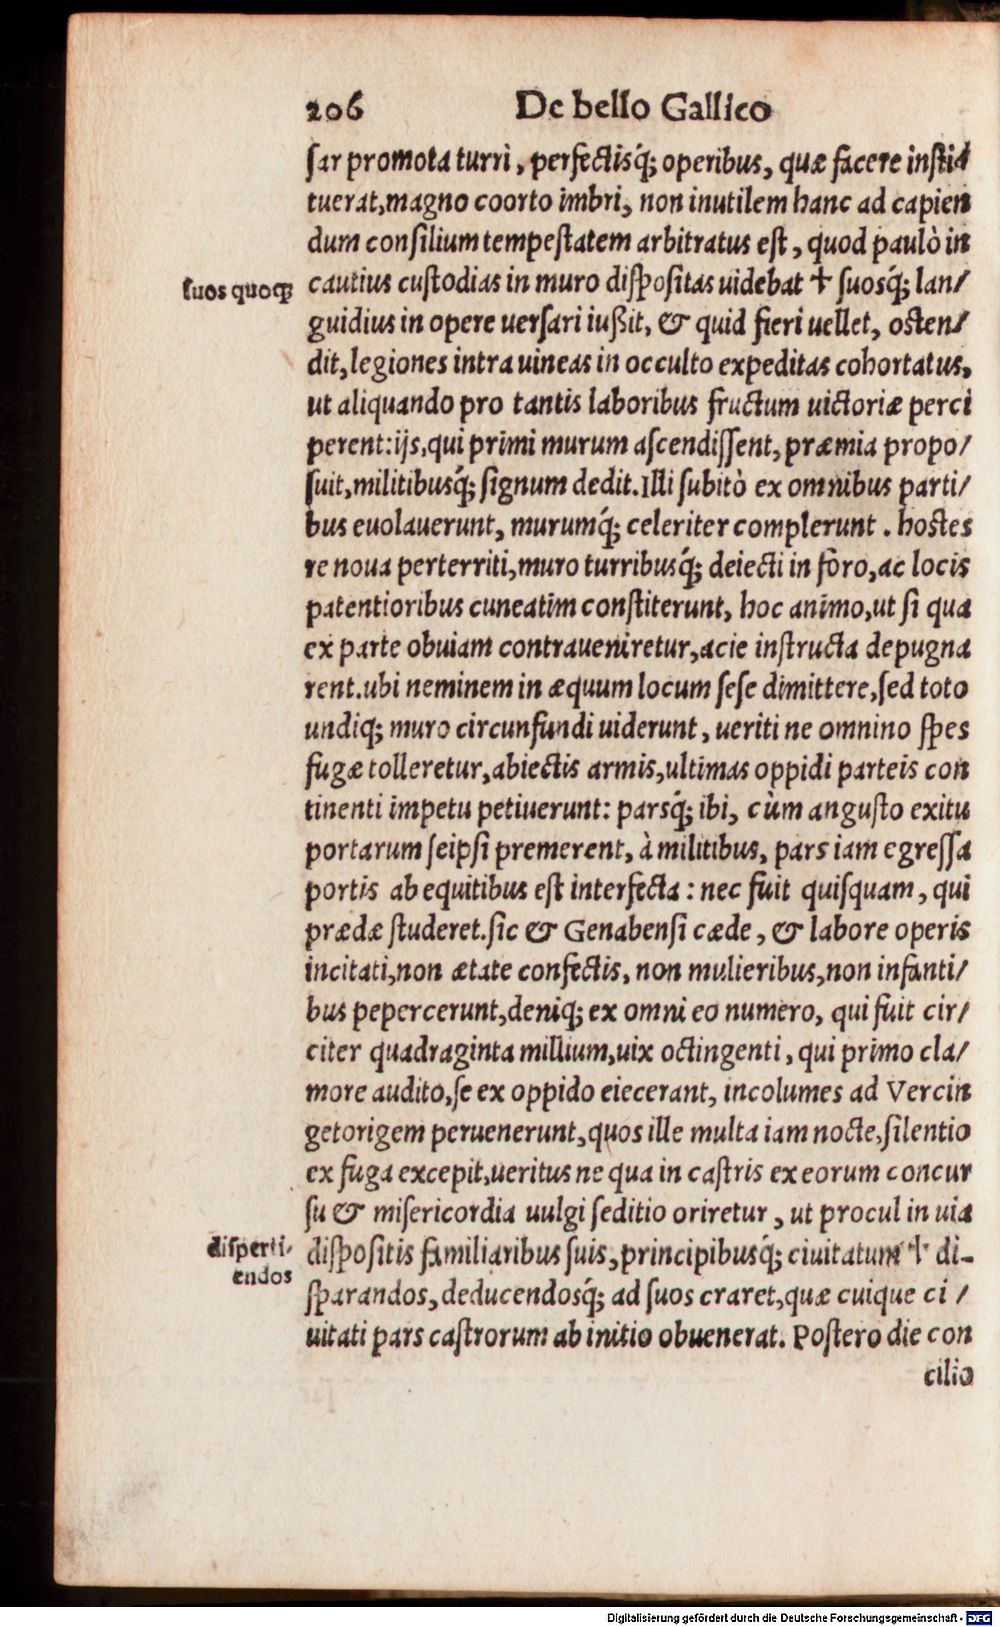 206 De bello Gallico
ſar promota turri, perfectisq́; operibus, quæ facere inſti⸗
tuerat, magno coorto imbri, non inutilem hanc ad capien
dum conſilium tempeſtatem arbitratus eſt, quod paulò in
ſuos quoq;
cautius cuſtodias in muro diſpoſitas uidebat † ſuosq́; lan/
guidius in opere uerſari iußit, & quid fieri uellet, oſten/
dit, legiones intra uineas in occulto expeditas cohortatus,
ut aliquando pro tantis laboribus fructum uictoriæ perci
perent: ijs, qui primi murum aſcendiſſent, præmia propo/
ſuit, militibusq́; ſignum dedit. Illi ſubitò ex omnibus parti/
bus euolauerunt, murumq́; celeriter complerunt. hoſtes
re noua perterriti, muro turribusq́; deiecti in foro, ac locis
patentioribus cuneatim conſtiterunt, hoc animo, ut ſi qua
ex parte obuiam contraueniretur, acie inſtructa depugna
rent. ubi neminem in æquum locum ſeſe dimittere, ſed toto
undiq; muro circunfundi uiderunt, ueriti ne omnino ſpes
fugæ tolleretur, abiectis armis, ultimas oppidi parteis con
tinenti impetu petiuerunt: parsq́; ibi, cùm anguſto exitu
portarum ſeipſi premerent, à militibus, pars iam egreſſa
portis ab equitibus eſt interfecta: nec fuit quiſquam, qui
prædæ ſtuderet. ſic & Genabenſi cæde, & labore operis
incitati, non ætate confectis, non mulieribus, non infanti/
bus pepercerunt, deniq; ex omni eo numero, qui fuit cir/
citer quadraginta millium, uix octingenti, qui primo cla/
more audito, ſe ex oppido eiecerant, incolumes ad Vercin
getorigem peruenerunt, quos ille multa iam nocte, ſilentio
ex fuga excepit, ueritus ne qua in caſtris ex eorum concur
ſu & miſericordia uulgi ſeditio oriretur, ut procul in uia
diſperti⸗
endos
diſpoſitis familiaribus ſuis, principibusq́; ciuitatum † di-
ſparandos, deducendosq́; ad ſuos craret, quæ cuique ci /
uitati pars caſtrorum ab initio obuenerat. Poſtero die con
cilio
Digitalisierung gefördert durch die Deutsche Forschungsgemeinschaft - DFG